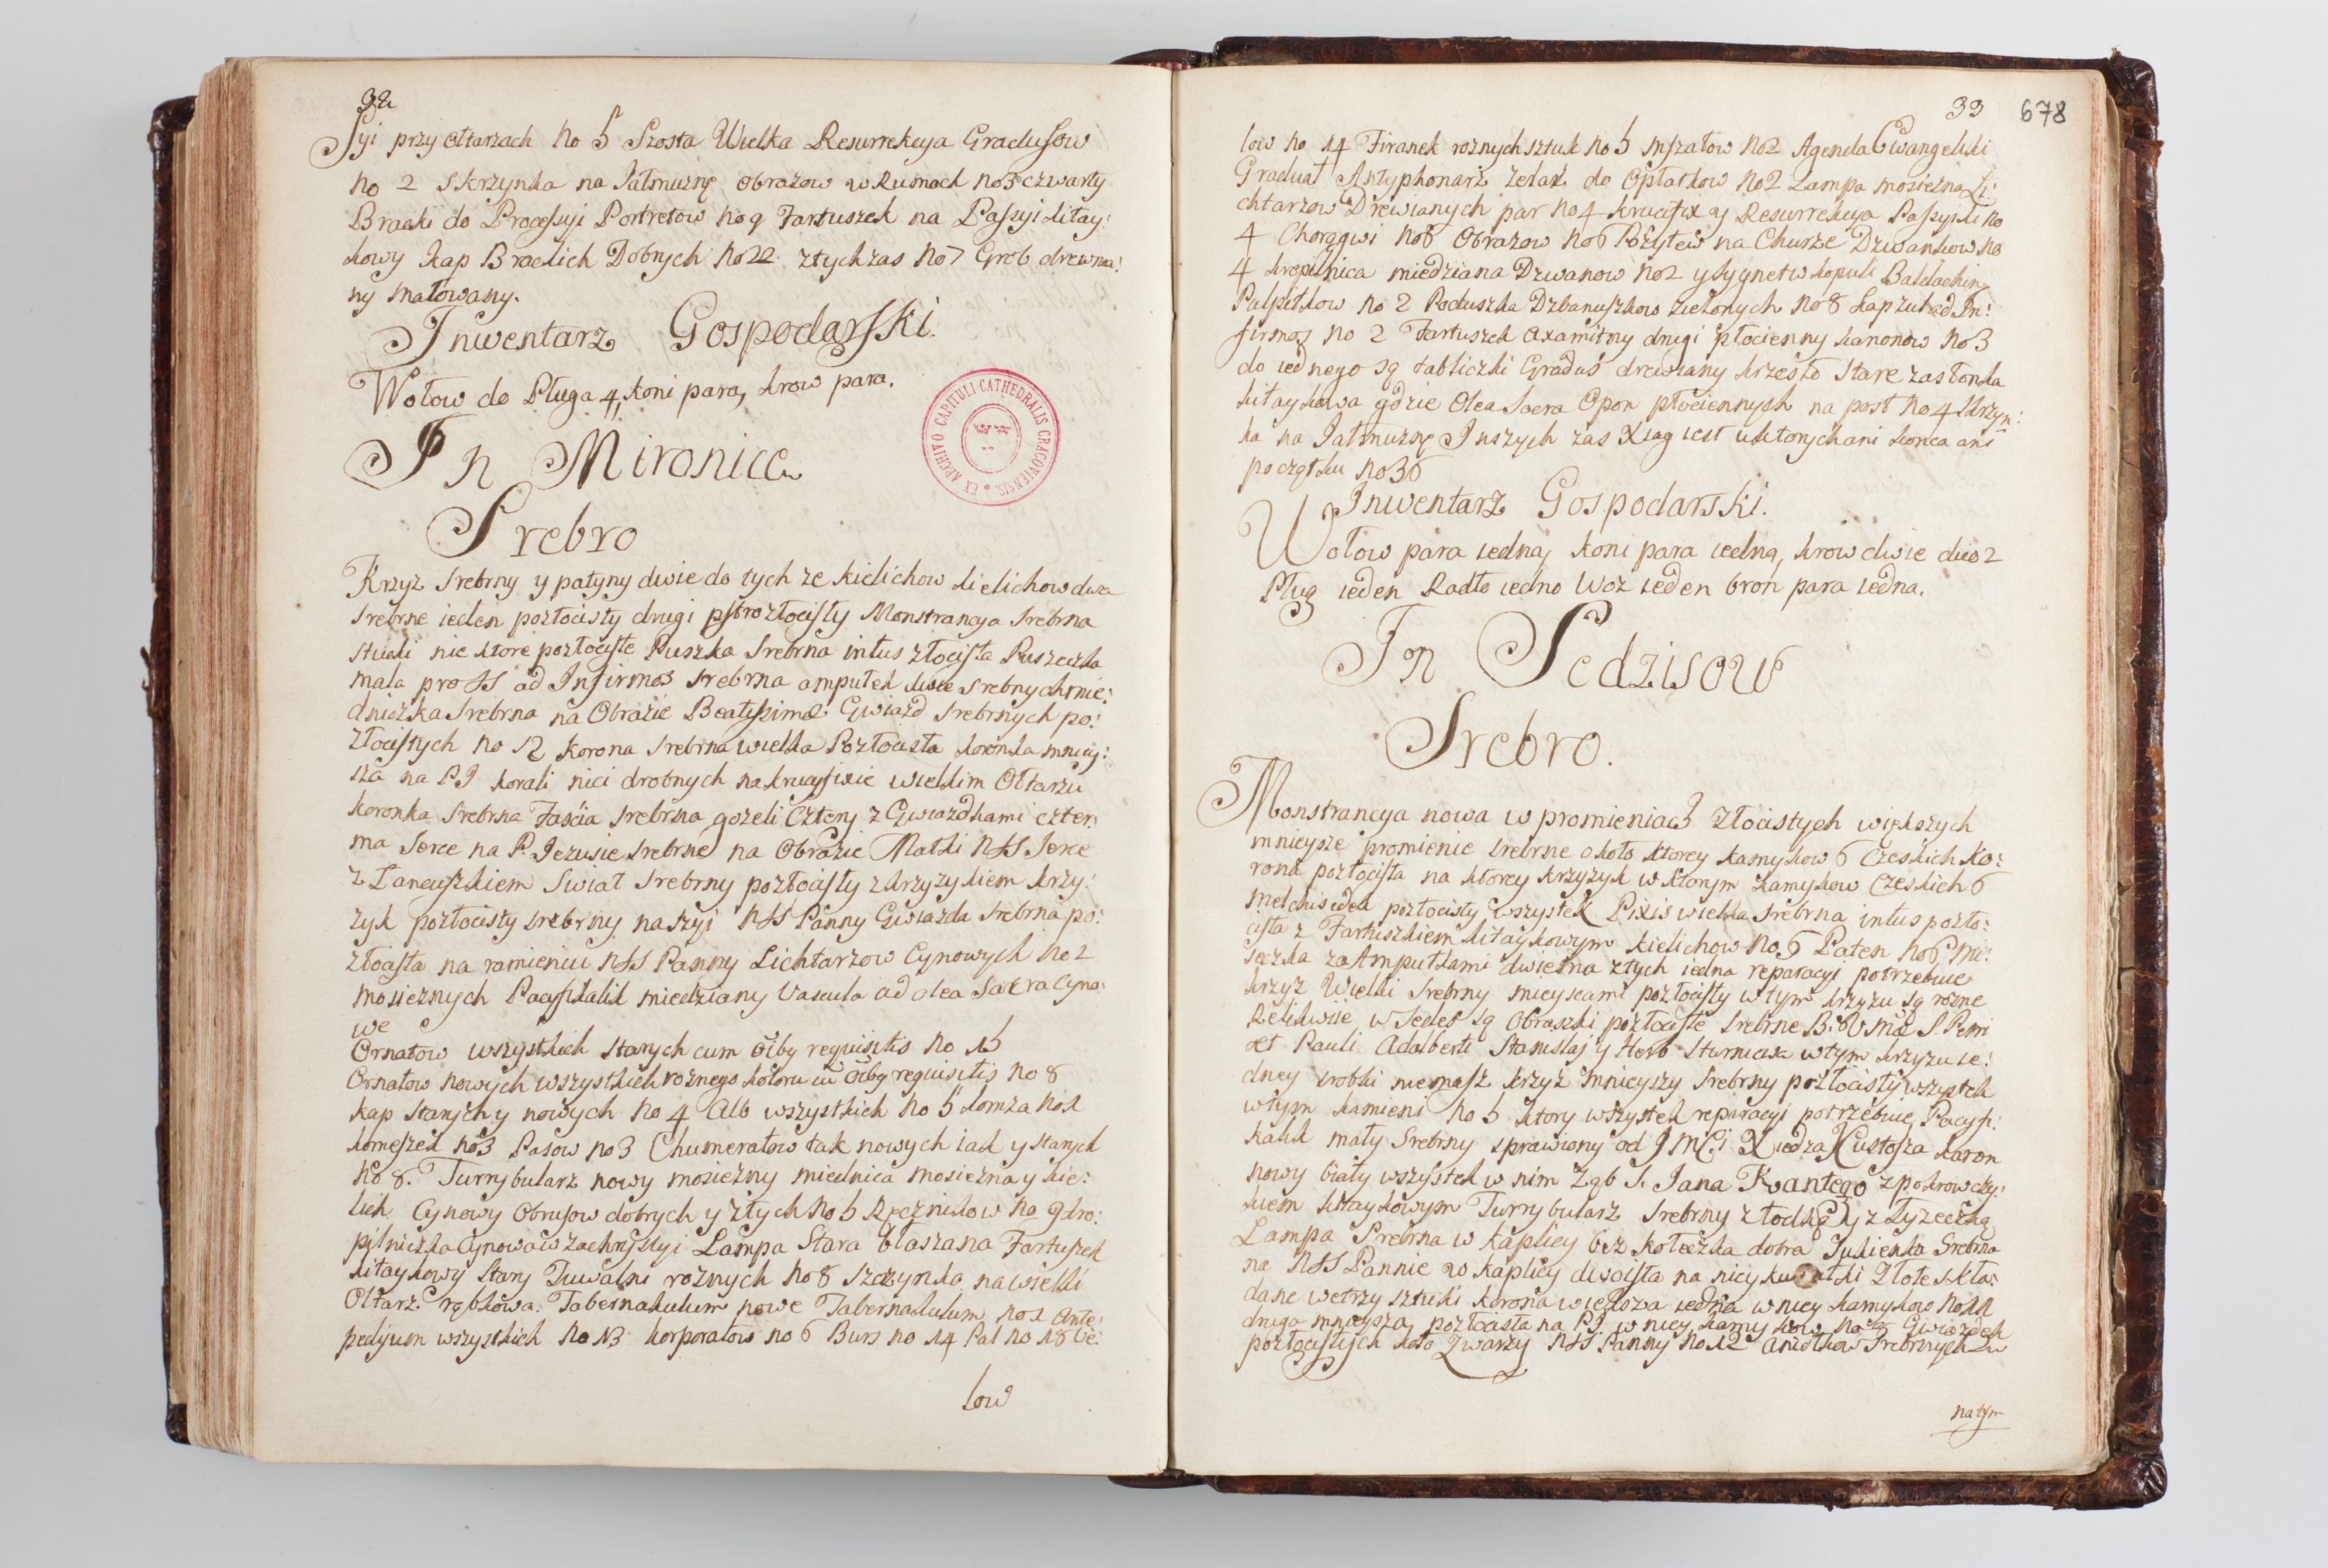 32
Syi przy ołtarzach No 5 Szosta Wielka Resurrekcya Gradusow
No 2 skrzynka na Jałmużnę obrazow w Rumach No 3 czwarty
Bracki do Processyi Portretow no 9 Fartuszek na Passyi kitay:
kowy Kap Brackich Dobrych No 22 złych zas No 7 Grob drewnia:
ny malowany.
Inwentarz Gospodarski.
Wołow do Pługa 4, koni para, krow para.
In Mironice
EX ARCHIVO CAPITULI CATHEDRALIS CRACOVIENSIS
Srebro
Krzyz srebrny y patyny dwie do tych ze kielichow kielichow dwa
srebrne ieden pozłocisty drugi pstrozłocisty Monstrancya srebrna
sztuki nie ktore pozłociste Puszka srebrna intus złocista Puszeczka
mała pro SS ad Infirmos srebrna ampułek dwie srebnych mie:
dniczka srebrna na Obrazie Beatissimæ Gwiazd srebrnych po:
złocistych no 12 korona srebrna wielka Pozłocista koronka mniey:
sza na PJ korali nici drobnych na krucyfixie wielkim Ołtarzu
koronka srebrna Fascia srebrna gozeli cztery z Gwiazdkami czter:
ma Serce na P. Jezusie srebrne na Obrazie Matki NSS Serce
z Lancuszkiem Swiat srebrny pozłocisty z krzyzykiem krzy:
zyk pozłocisty srebrny na szyi NSS Panny Gwiazda srebrna po:
złocista na ramieniu NSS Panny Lichtarzow Cynowych no 2
mosieznych Pacyfikalik miedziany Vascula ad olea Sacra Cyno:
we
Ornatow wszystkich starych cum oibg requisitis no 15
Ornatow nowych wszystkich roznego koloru cu oibg requisitis no 8
kap starych y nowych no 4 Alb wszystkich no 5 komza no 1
komeszek no 3 Pasow no 3 Chumerałow tak nowych iak y starych
No 8. Turrybularz nowy mosiezny miednica mosiezna y kie:
lich Cynowy Obrusow dobrych y złych No 5 Ręcznikow No 9 kro:
pilniczka Cynowa w zachrystyi Lampa Stara blaszana Fartuszek
kitaykowy stary Tuwalni roznych no 8 na wielki
Ołtarz rąbkowa. Tabernakulum nowe Tabernakulum no 1 Ante:
pedyum wszystkich No 13 korporałow no 6 Burs no 14 Pal no 18 Ve:
low
33
678
low no 14 Firanek roznych sztuk no 5 Mszałow No 2 Agenda Ewangeliki
Graduał Antyphonarz zelaz do Opłatkow No 2 Lampa mosiezna Li:
chtarzow Drewianych par No 4 krucifix y Resurrekcya Passyiki no
4 Chorągwi no 6 Obrazow no 6 Pozytew na Churze Dzwonkow no
4 kropilnica miedziana Dzwonow no 2 y sygnet w kopuli Baldachin
Pulpitkow no 2 Poduszka Dzbanuszkow zielonych no 8 kapzułek ad In:
firmos no 2 Fartuszek axamitny drugi płocienny kanonow no 3
do iednego są tabliczki Gradus drewiany krzesło stare zasłonka
kitaykowa gdzie Olea Sacra Opon płociennych na post no 4 skrzyn:
ka na Jałmuznę Inszych zas Xiąg iest u ktorych ani konca ani
początku no 36
Inwentarz Gospodarski.
Wołow para iedna, koni para iedna, krow dwie duo 2
Pług ieden Radło iedno Woz ieden bron para iedna.
In Sedzisow
Srebro.
Monstrancya nowa w promieniach złocistych większych
mnieysze promienie srebrne około ktorey kamykow 6 Czeskich Ko:
rona pozłocista na ktorey krzyzyk w ktorym kamykow Czeskich 6
Melchisedek pozłocisty wszystek Pixis wielka srebrna intus pozło:
cista z Fartuszkiem kitaykowym kielichow no 6 Paten no 6 Mi:
seczka z Ampułkami dwiema z tych iedna reparacyi potrzebuie
krzyz Wielki srebrny mieyscami pozłocisty w tym krzyzu są rozne
Relikwiie w Sedes są Obraszki pozłociste srebrne B: V Mæ S. Petri
et Pauli Adalberti Stanislai y Herb w tym krzyzu ie:
dney srobki niemasz krzyz mnieyszy srebrny pozłocisty wszystek
w tym kamieni no 5 ktory wszystek reparacyi potrzebuie, Pacyfi:
kalik mały srebrny sprawiony od JMCi Xiedza Kustosza karon
nowy biały wszystek w nim Ząb S. Jana Kantego z pokrowczy:
kiem kitaykowym Turrybularz srebrny z łodką y z łyzeczką
Lampa Srebrna w kaplicy bez kołeczka dobra Sukienka Srebrna
na NSS Pannie w kaplicy dwoista na niey Złote skła:
dane we trzy sztuki korona wieksza iedna w niey kamykow no 11
druga mnieysza pozłocista na PJ w niey kamykow no Gwiazdek
pozłocistych koło Twarzy NSS Panny No 12 aniołkow srebrnych 2
na tym